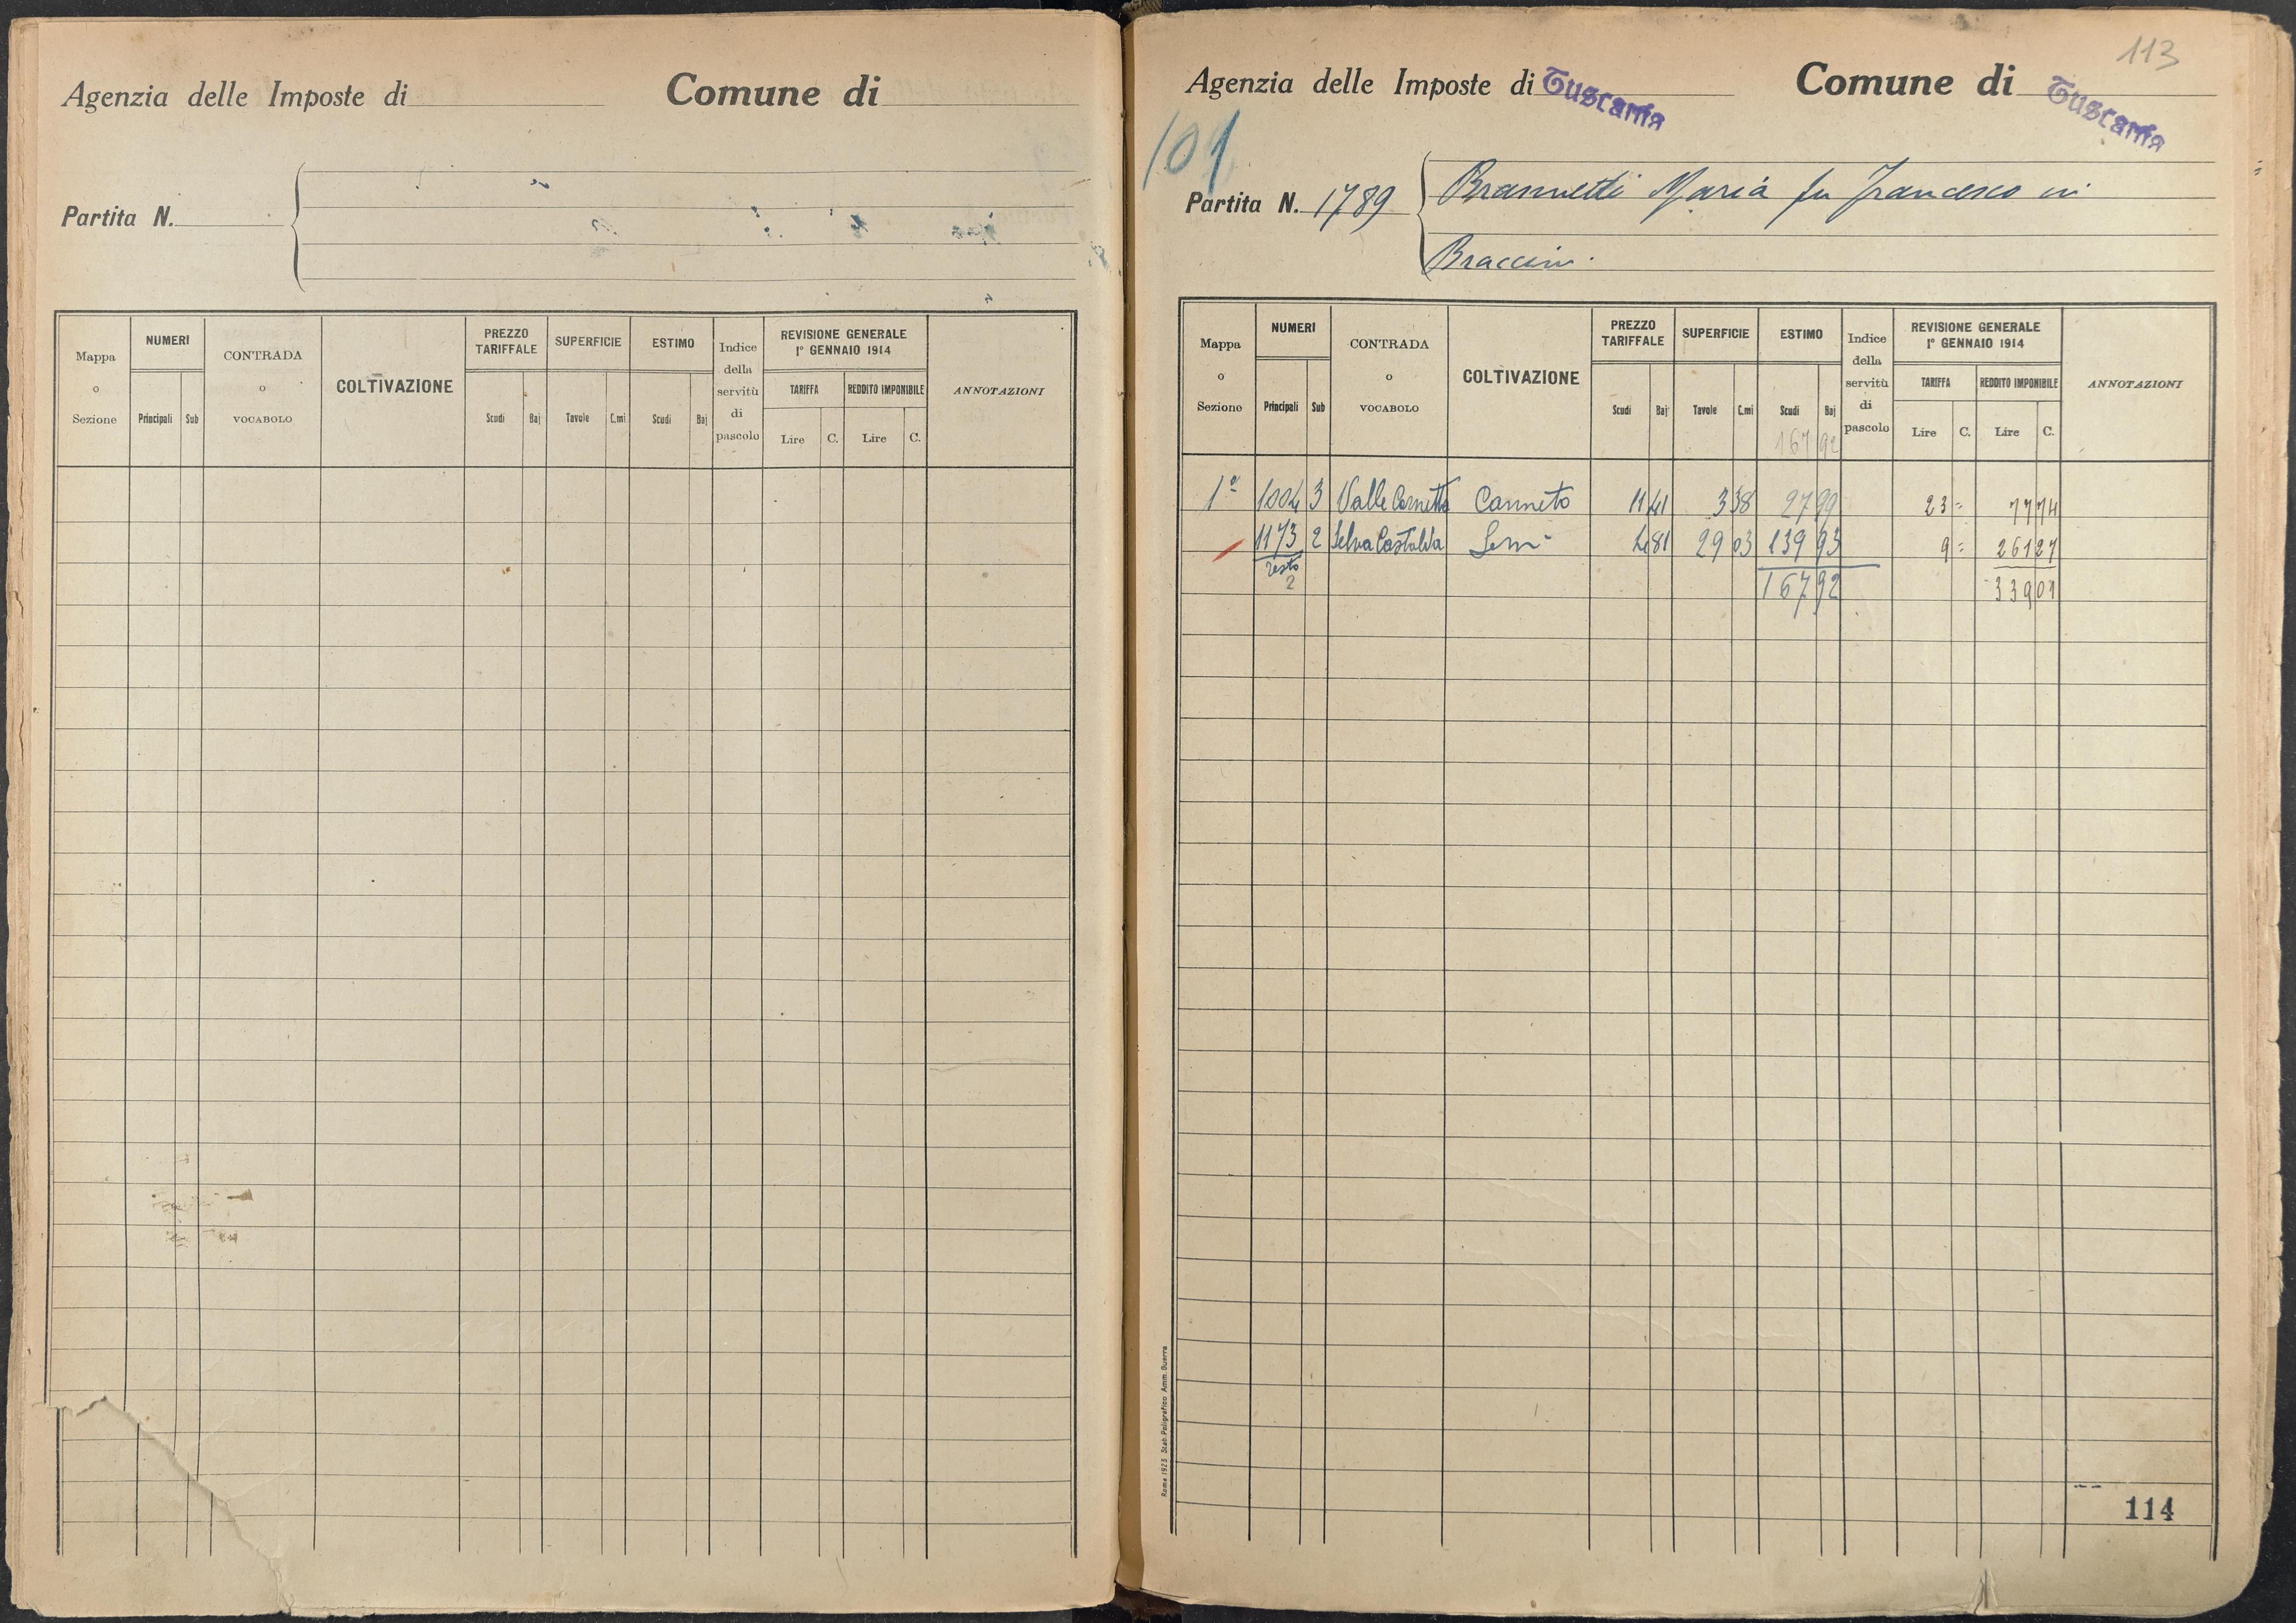 Agenzia delle Imposte di
Comune di
Partita N.
Mappa o Sezione
NUMERI
Principali Sub
CONTRADA o VOCABOLO
COLTIVAZIONE
PREZZO TARIFFALE
Scudi Baj
SUPERFICIE
Tavole C.mi
ESTIMO
Scudi Baj
Indice della servitù di pascolo
REVISIONE GENERALE
1° GENNAIO 1914
TARIFFA
Lire C.
REDDITO IMPONIBILE
Lire C.
ANNOTAZIONI
113
Agenzia delle Imposte di Tuscania
Comune di Tuscania
101
Partita N. 1789
Brannetti Maria fu Francesco in
Braccini.
Mappa o Sezione
NUMERI
Principali Sub
CONTRADA o VOCABOLO
COLTIVAZIONE
PREZZO TARIFFALE
Scudi Baj
SUPERFICIE
Tavole C.mi
ESTIMO
Scudi Baj
167 92
Indice della servitù di pascolo
REVISIONE GENERALE
1° GENNAIO 1914
TARIFFA
Lire C.
REDDITO IMPONIBILE
Lire C.
ANNOTAZIONI
1° 1004 3 Valle Cornetta Canneto 11 41 3 38 27 99 23 = 77 74
1173 2 Selva Castalda Sem° 4 81 29 03 139 93 9 = 261 27
resto
2 167 92 339 01
Roma 1923 Stab. Poligrafico Amm. Guerra
114